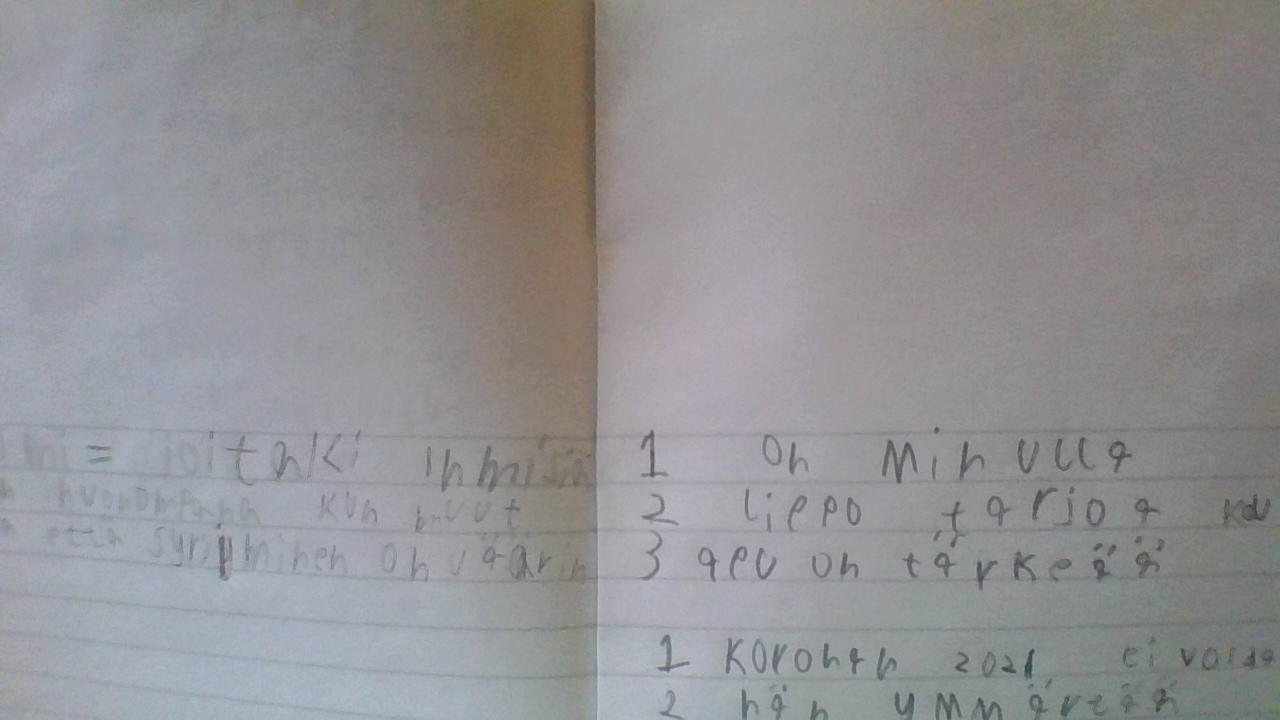 = joitaki ihmisiä
huonompana kun muut
että syrjiminen on väärin
1 on minulla
2 liepo tarjoa
3 apu on tärkeää
1 koronan 2021 ei voida
2 hän ymmärtää